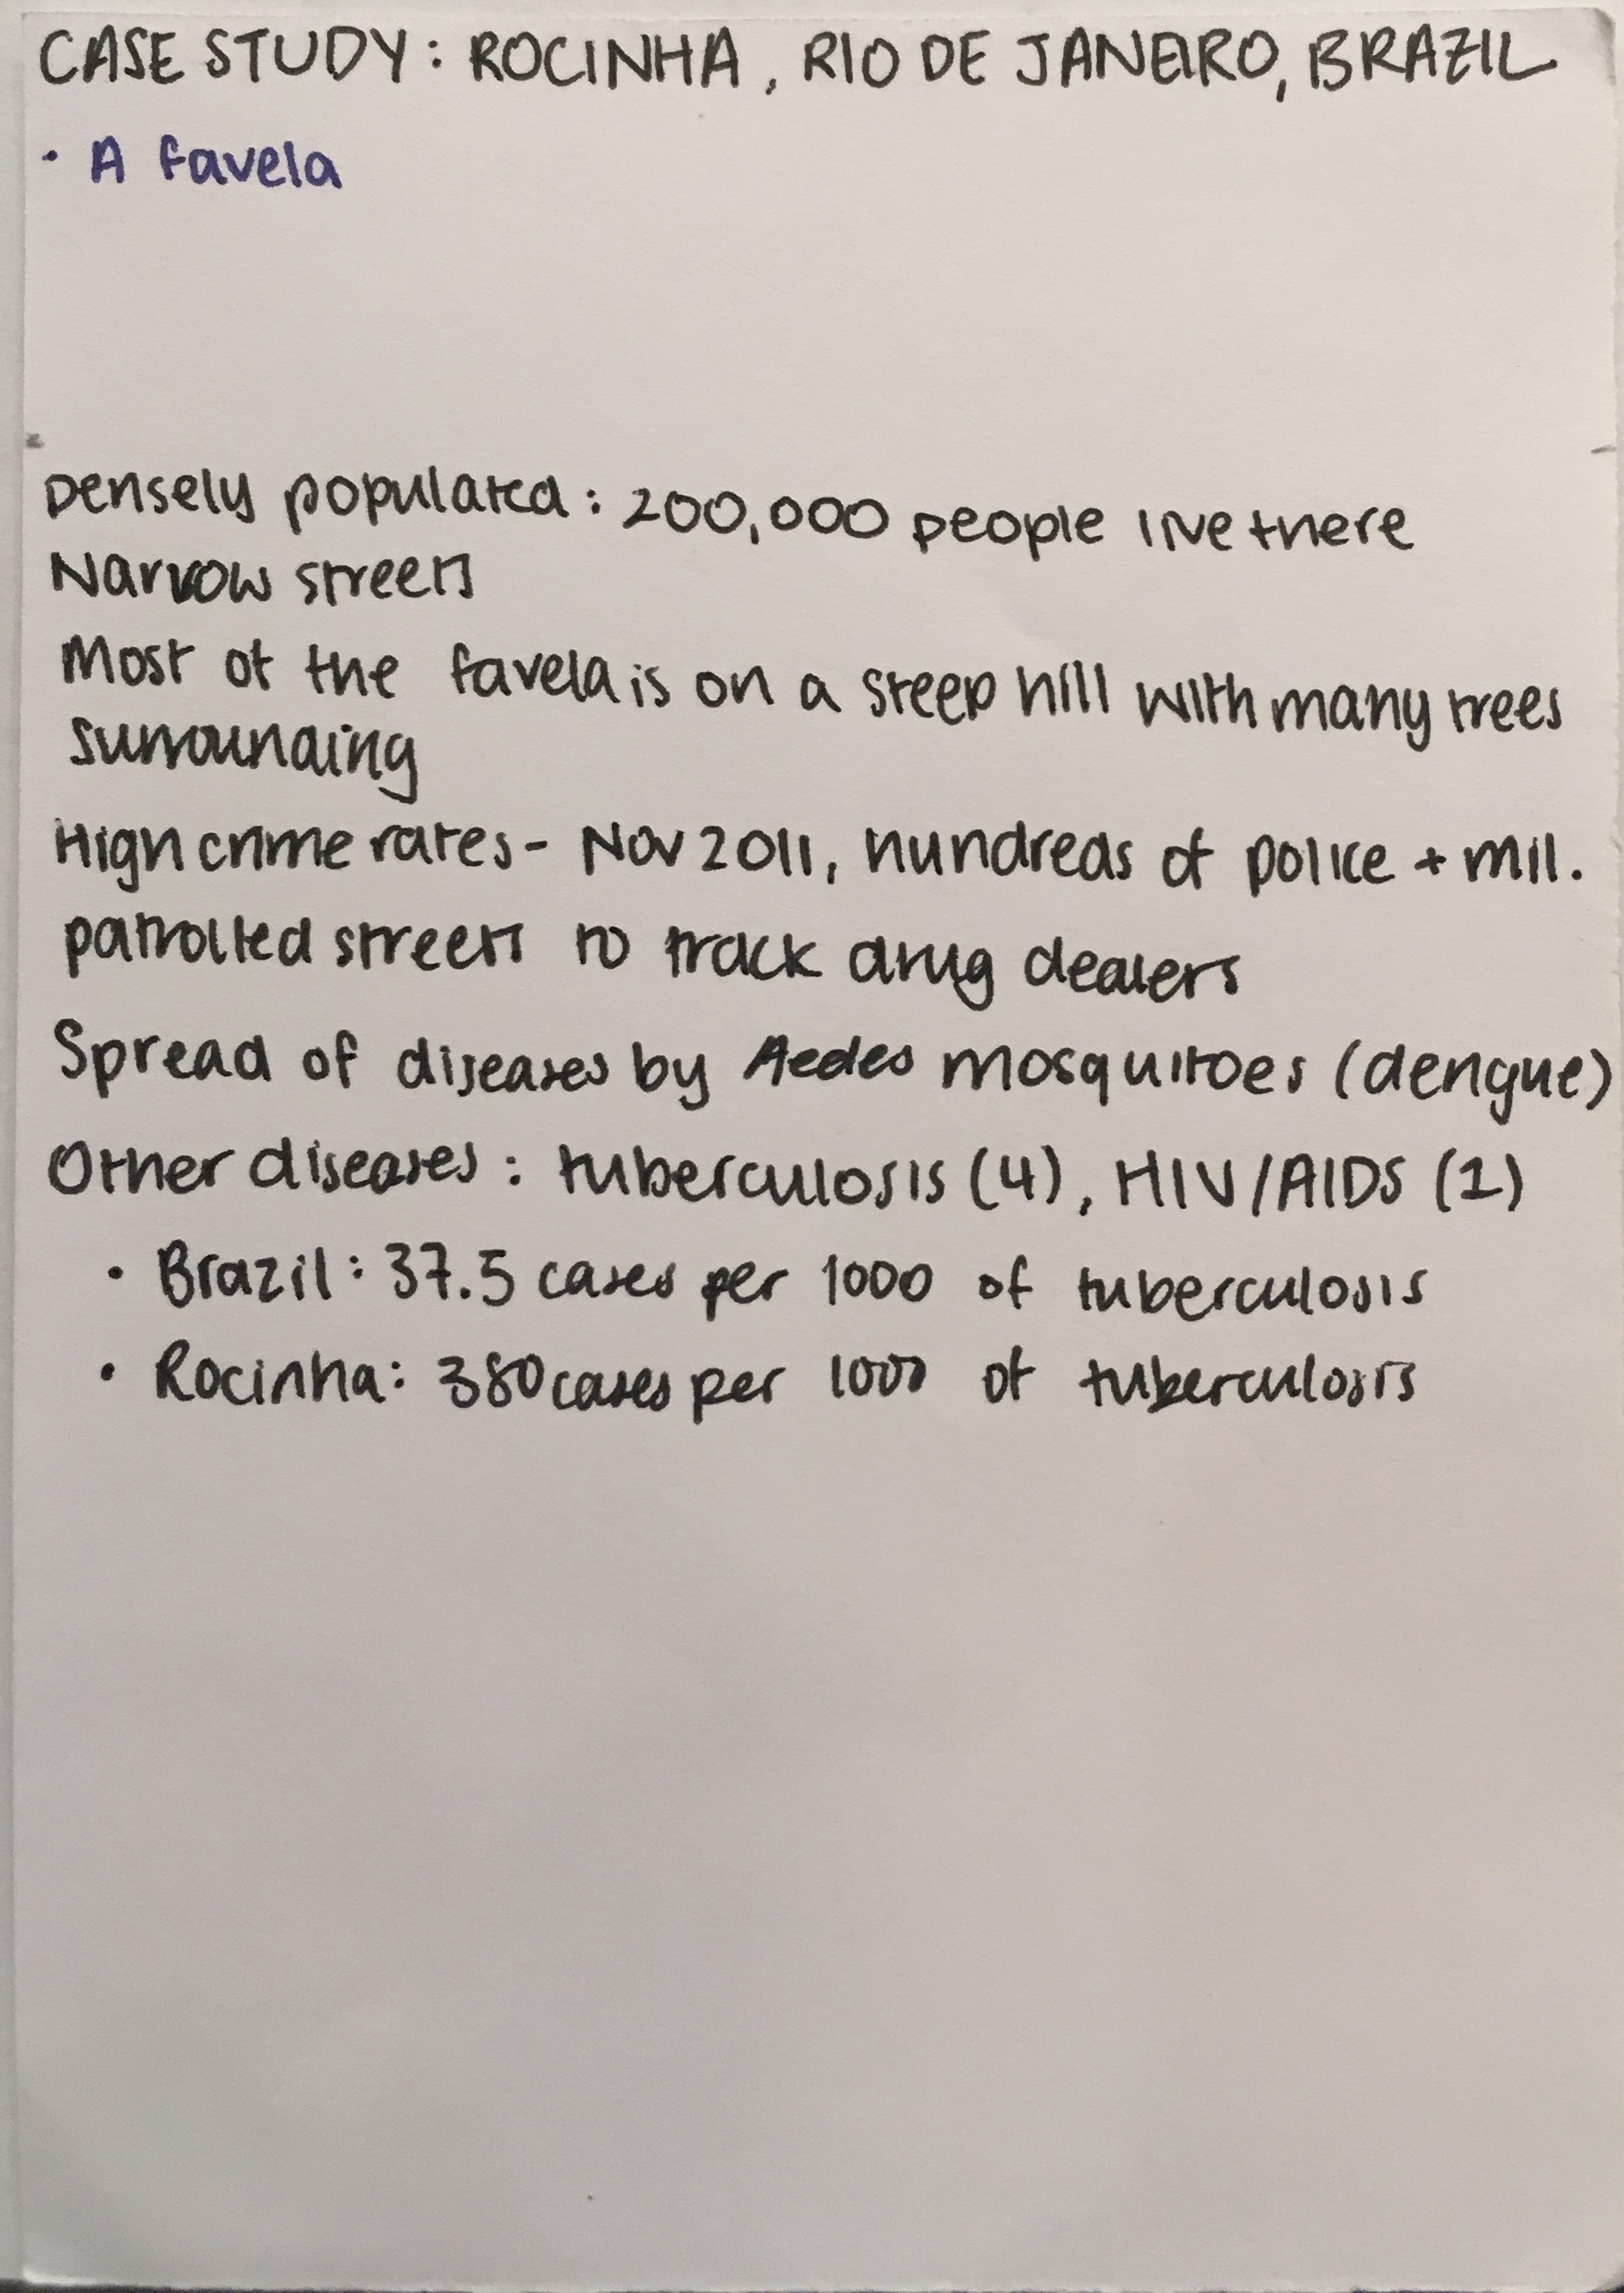 CASE STUDY: ROCINHA, RIO DE JANEIRO, BRAZIL
· A favela
Densely populated: 200,000 people live there
Narrow streets
Most of the favela is on a steep hill with many trees
surrounding
High crime rates - Nov 2011, hundreds of police + mil.
patrolled streets to track drug dealers
Spread of diseases by Aedes mosquitoes (dengue)
Other diseases: tuberculosis (4), HIV/AIDS (1)
· Brazil: 37.5 cases per 1000 of tuberculosis
· Rocinha: 380 cases per 1000 of tuberculosis